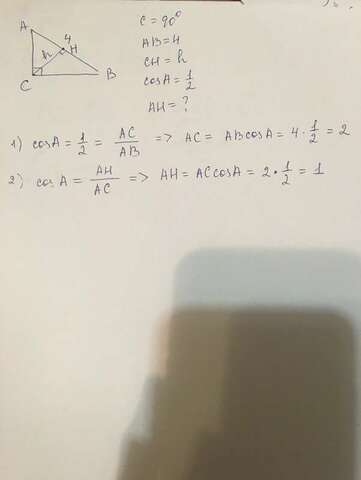 A
4
h
H
C
B
C = 90°
AB = 4
CH = h
cosA = 1/2
AH = ?
1) cosA = 1/2 = AC/AB => AC = ABcosA = 4 · 1/2 = 2
2) cosA = AH/AC => AH = ACcosA = 2 · 1/2 = 1